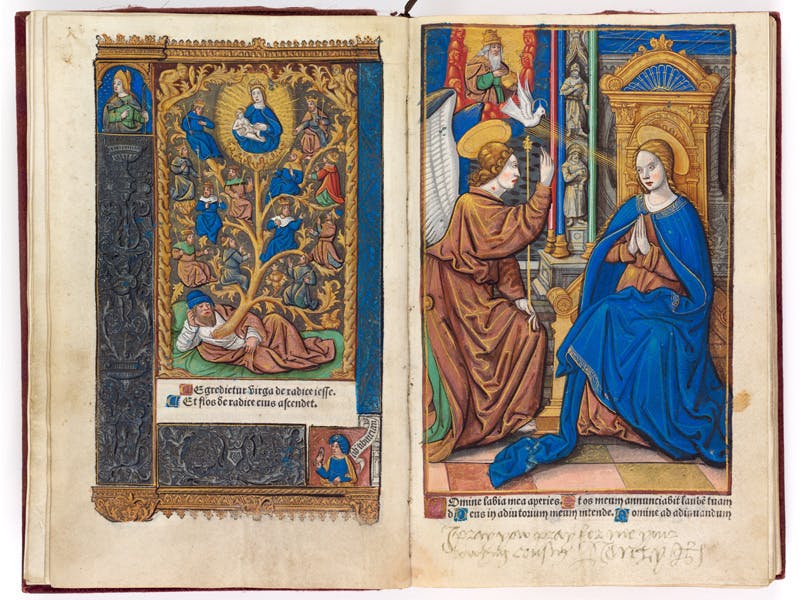 Egredietur virga de radice iesse.
Et flos de radice eius ascendet.
Domine labia mea aperies. Et os meum annunciabit laudem tuam
Deus in adiutorium meum intende. Domine ad adiuuandum
pray yow pray for me your